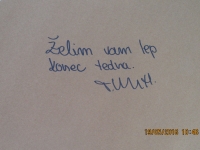 Želim vam lep
konec tedna.
18/02/2016 18:06